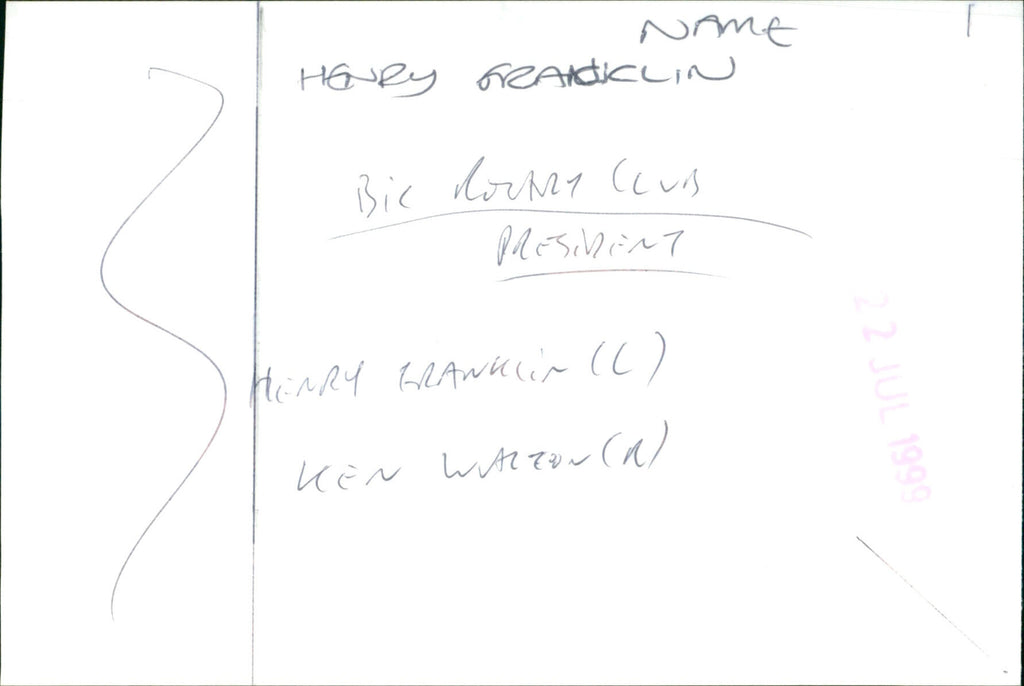 NAME
HENRY FRANKLIN
BIC ROTARY CLUB
PRESIDENT
HENRY FRANKLIN (L)
KEN (R)
22 JUL 1999